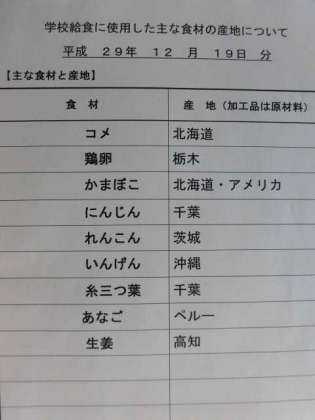 学校給食に使用した主な食材の産地について
平成 29年 12 月 19日 分
【主な食材と産地】
食 材 産 地（加工品は原材料）
コメ 北海道
鶏卵 栃木
かまぼこ 北海道・アメリカ
にんじん 千葉
れんこん 茨城
いんげん 沖縄
糸三つ葉 千葉
あなご ペルー
生姜 高知